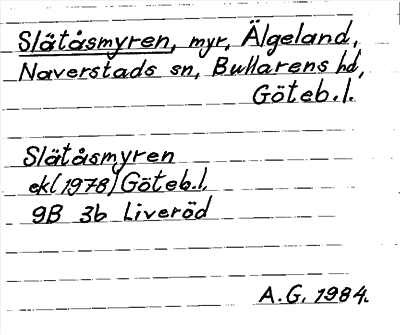 Slätåsmyren, myr, Älgeland,
Naverstads sn, Bullarens hd,
Göteb.l.
Slätåsmyren
ek(1978) Göteb.l.
9B 3b Liveröd
A.G. 1984.